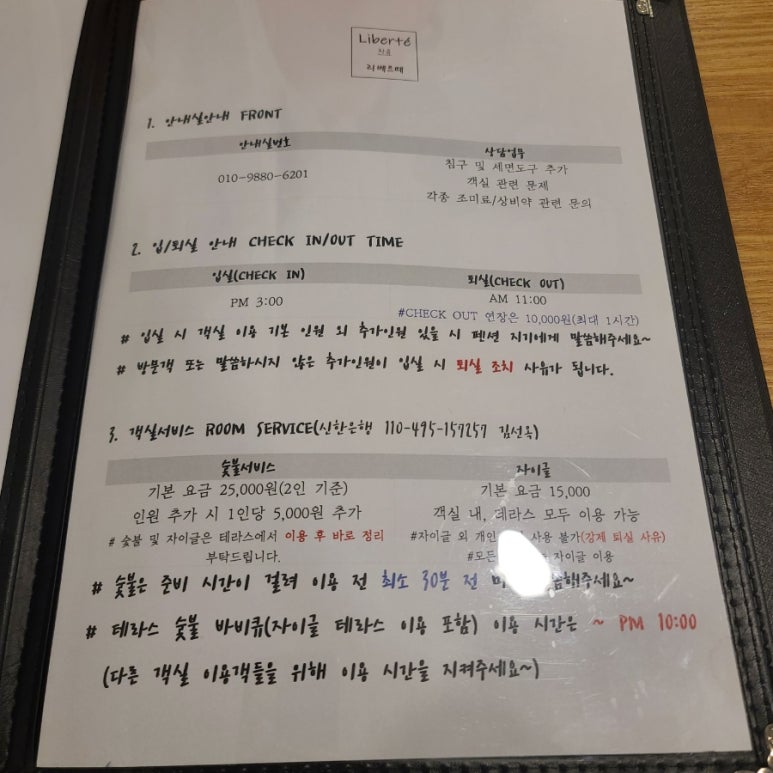 Liberté
리베르떼
1. 안내실안내 FRONT
안내실번호
상담업무
010-9880-6201
침구 및 세면도구 추가
객실 관련 문제
각종 조미료/상비약 관련 문의
2. 입/퇴실 안내 CHECK IN/OUT TIME
입실(CHECK IN)
퇴실(CHECK OUT)
PM 3:00
AM 11:00
#CHECK OUT 연장은 10,000원(최대 1시간)
# 입실 시 객실 이용 기본 인원 외 추가인원 있을 시 펜션 지기에게 말씀해주세요~
# 방문객 또는 말씀하시지 않은 추가인원이 입실 시 퇴실 조치 사유가 됩니다.
3. 객실서비스 ROOM SERVICE(신한은행 110-495-157257 김선옥)
숯불서비스
자이글
기본 요금 25,000원(2인 기준)
기본 요금 15,000
인원 추가 시 1인당 5,000원 추가
객실 내, 테라스 모두 이용 가능
# 숯불 및 자이글은 테라스에서 이용 후 바로 정리
부탁드립니다.
#자이글 외 개인 사용 불가(강제 퇴실 사유)
#모든 자이글 이용
# 숯불은 준비 시간이 걸려 이용 전 최소 30분 전 해주세요~
# 테라스 숯불 바비큐(자이글 테라스 이용 포함) 이용 시간은 ~ PM 10:00
(다른 객실 이용객들을 위해 이용 시간을 지켜주세요~)